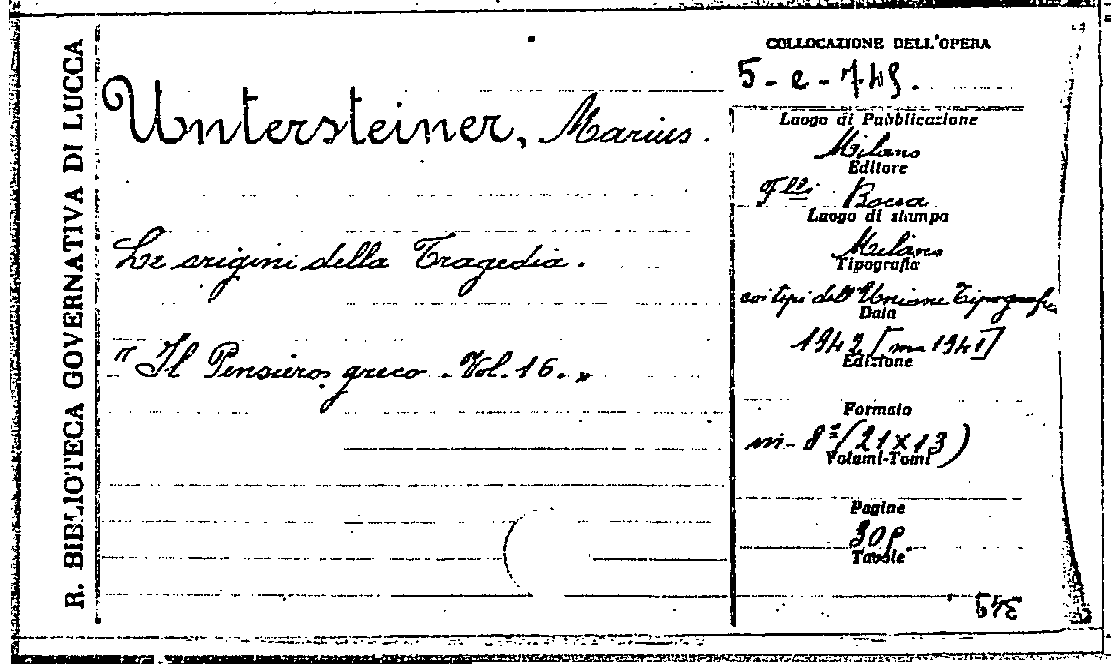 R. BIBLIOTECA GOVERNATIVA DI LUCCA
Untersteiner, Marius.
Le origini della Tragedia.
" Il Pensiero greco . Vol. 16. "
COLLOCAZIONE DELL'OPERA
5-e-749.
Luogo di Pubblicazione
Milano
Editore
F.lli Bocca
Luogo di stampa
Milano
Tipografia
coi tipi dell'Unione Tipografi
Data
1942 [ma 1941]
Edizione
Formato
in-8º (21x13)
Volumi-Tomi
Pagine
Tavole